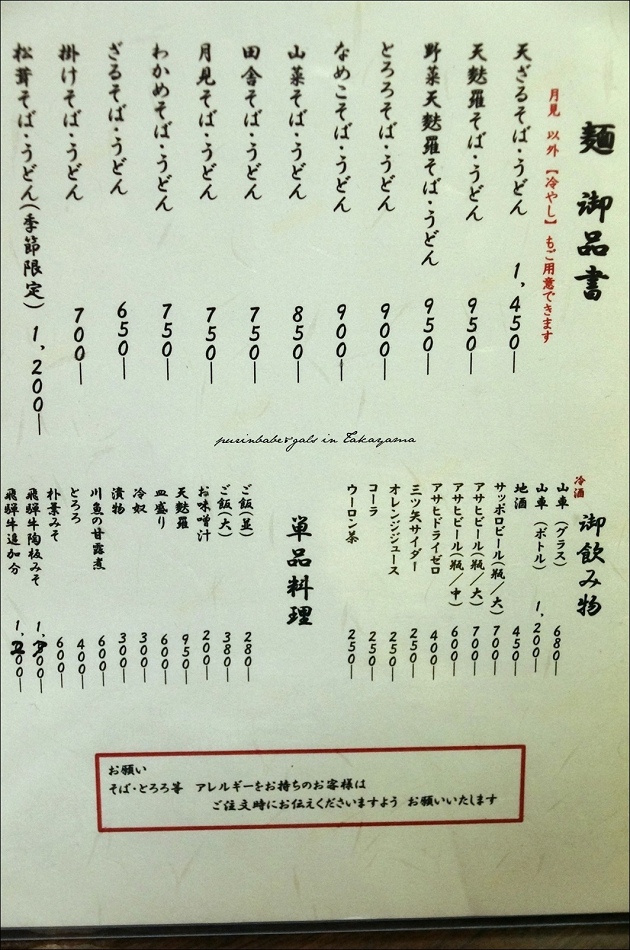 麺 御品書
月見 以外 【冷やし】 もご用意できます
天ざるそば・うどん 1,450—
天麩羅そば・うどん 950—
野菜天麩羅そば・うどん 950—
とろろそば・うどん 900—
なめこそば・うどん 900—
山菜そば・うどん 850—
田舎そば・うどん 750—
月見そば・うどん 750—
わかめそば・うどん 750—
ざるそば・うどん 650—
掛けそば・うどん 700—
松茸そば・うどん(季節限定) 1,200—
purinbabe&gals in Takayama
御飲み物
冷酒
山車 (グラス) 680—
山車 (ボトル) 1,200—
地酒 450—
サッポロビール(瓶/大) 700—
アサヒビール(瓶/大) 700—
アサヒビール(瓶/中) 600—
アサヒドライゼロ 400—
三ツ矢サイダー 250—
オレンジジュース 250—
コーラ 250—
ウーロン茶 250—
単品料理
ご飯(並) 280—
ご飯(大) 380—
お味噌汁 200—
天麩羅 950—
皿盛り 600—
冷奴 300—
漬物 300—
川魚の甘露煮 600—
とろろ 400—
朴葉みそ 600—
飛騨牛陶板みそ
飛騨牛追加分
お願い
そば・とろろ等 アレルギーをお持ちのお客様は
ご注文時にお伝えくださいますよう お願いいたします